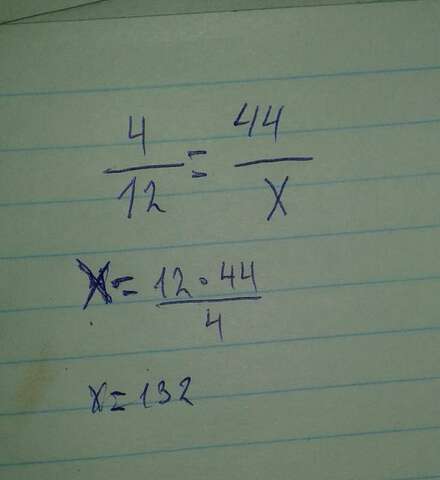 4/12 = 44/x
x = 12·44/4
x = 132